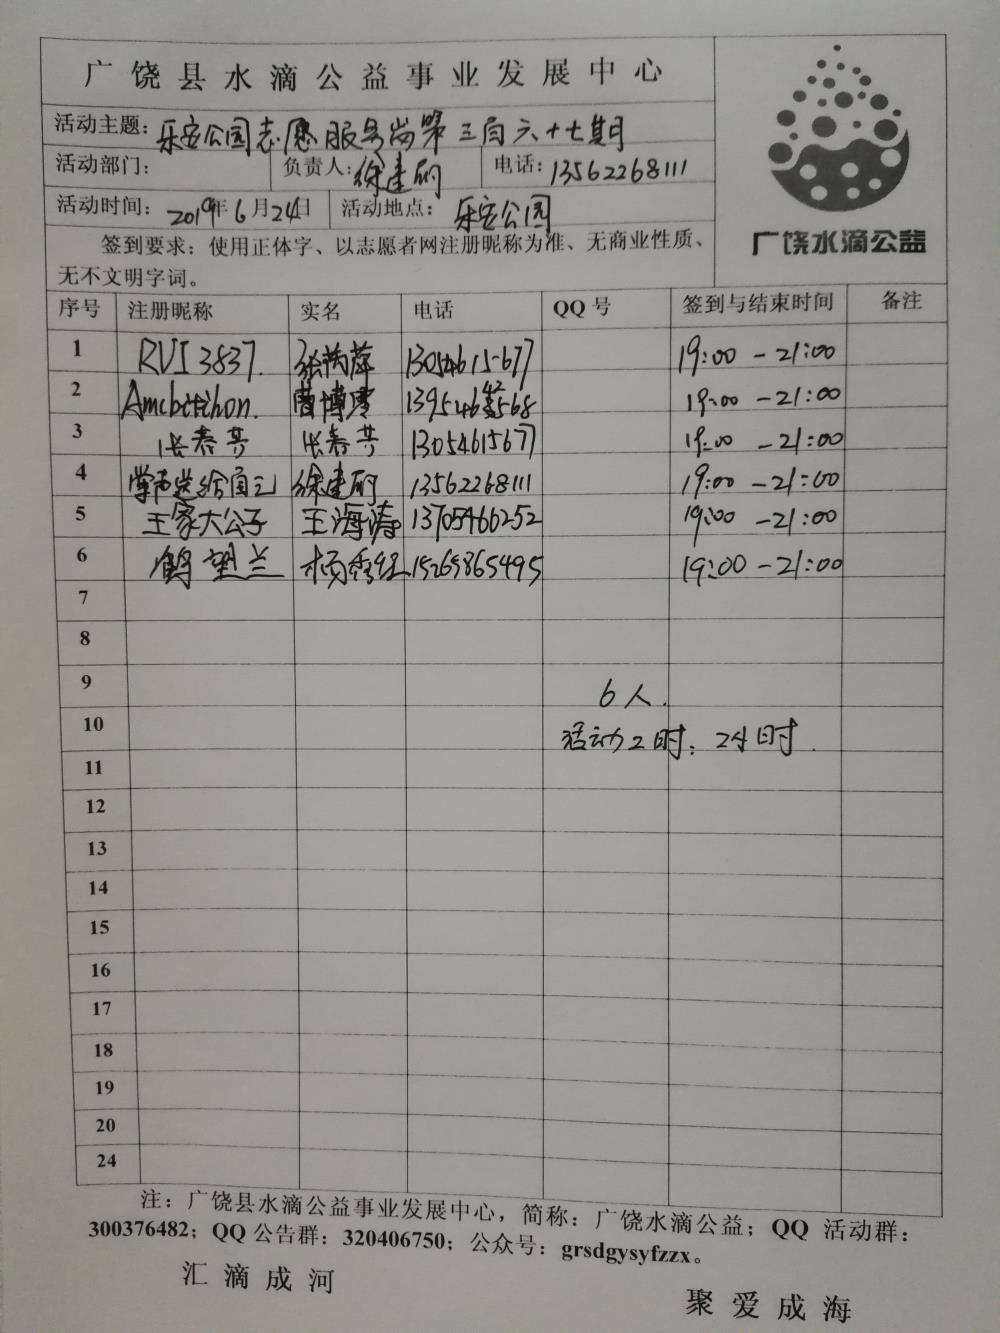 广饶县水滴公益事业发展中心
广饶水滴公益
活动主题：乐安公园志愿服务岗第三百六十七期
活动部门： 负责人：徐建丽 电话：13562268111
活动时间：2019年6月24日 活动地点：乐安公园
签到要求：使用正体字、以志愿者网注册昵称为准、无商业性质、
无不文明字词。
序号 注册昵称 实名 电话 QQ号 签到与结束时间 备注
1 RVI3837. 13054615677 19:00-21:00
2 曹博 19:00-21:00
3 张春芬 张春芬 13054615677 19:00-21:00
4 掌声送给自己 徐建丽 13562268111 19:00-21:00
5 王家大公子 王海涛 13705466252 19:00-21:00
6 鹤望兰 杨秀 15265865495 19:00-21:00
7
8
9 6人.
10 活动2时：24时
11
12
13
14
15
16
17
18
19
20
24
注：广饶县水滴公益事业发展中心，简称：广饶水滴公益；QQ 活动群：
300376482；QQ公告群：320406750；公众号：grsdgysyfzzx。
汇滴成河
聚爱成海